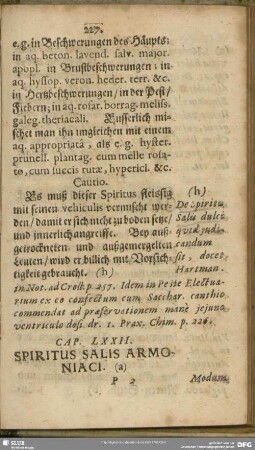 227.
e.g. in Beschwerungen des Häupts:
in aq. beton. lavend. salv. major.
apopl. in Brustbeschwerungen: in
aq. hyssop. veron. heder. terr. &c.
in Hertzbeschwerungen / in der Pest /
Fiebern; in aq. rosar. borrag. meliss.
galeg. theriacali. Eusserlich mi-
schet man ihn imgleichen mit einem
aq. appropriatâ, als e. g. hyster.
prunell. plantag. cum melle rosa-
to, cum succis rutæ, hyperici. &c.
Cautio.
Es muß dieser Spiritus fleissig
mit seinen vehiculis vermischt wer-
den / damit er sich nicht zu boden setze /
und innerlich angreiffe. Bey auß-
getrockneten und außgemergelten
Leuten / wird er billich mit Vorsich-
tigkeit gebraucht. (h)
(h)
De Spiritu
Salis dulci
quid judi-
candum
sit, docet
Hartman.
in Not. ad Croll. p. 257. Idem in Peste Electua-
rium ex eo confectum cum Sacchar. canthio
commendat ad præservationem mane jejuno
ventriculo dosi. dr. 1. Prax. Chim. p. 226.
CAP. LXXII.
SPIRITUS SALIS ARMO-
NIACI. (a)
P 2
Modum